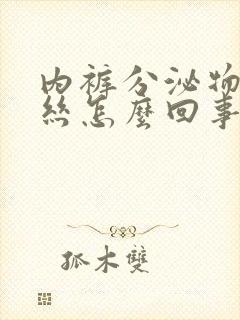 內褲分泌物
絲怎麼回事
孤木雙